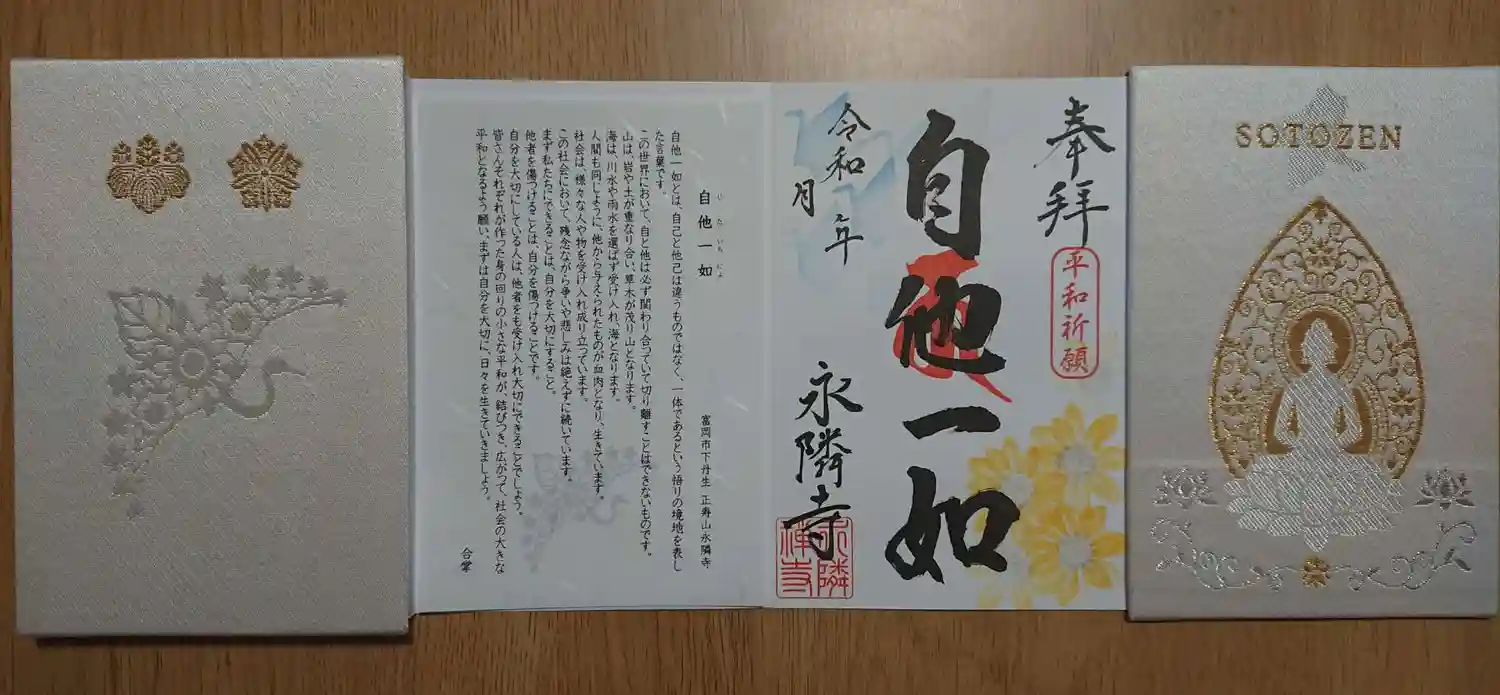 SOTOZEN
奉拝
平和祈願
自他一如
令和　年
月
永隣寺
永隣
禅寺
自他一如
じたいちにょ
富岡市下丹生 正寿山永隣寺
自他一如とは、自己と他己は違うものではなく、一体であるという悟りの境地を表し
た言葉です。
この世界において、自と他は必ず関わり合っていて切り離すことはできないものです。
山は、岩や土が重なり合い、草木が茂り山となります。
海は、川水や雨水を選ばず受け入れ、海となります。
人間も同じように、他から与えられたものが血肉となり、生きています。
社会は、様々な人や物を受け入れ成り立つています。
この社会において、残念ながら争いや悲しみは絶えずに続いています。
まず私たちにできることは、自分を大切にすること。
他者を傷つけることは、自分を傷つけることです。
自分を大切にしている人は、他者をも受け入れ大切にできることでしょう。
皆さんそれぞれが作った身の回りの小さな平和が、結びつき、広がつて、社会の大きな
平和となるよう願い、まずは自分を大切に、日々を生きていきましょう。
合掌